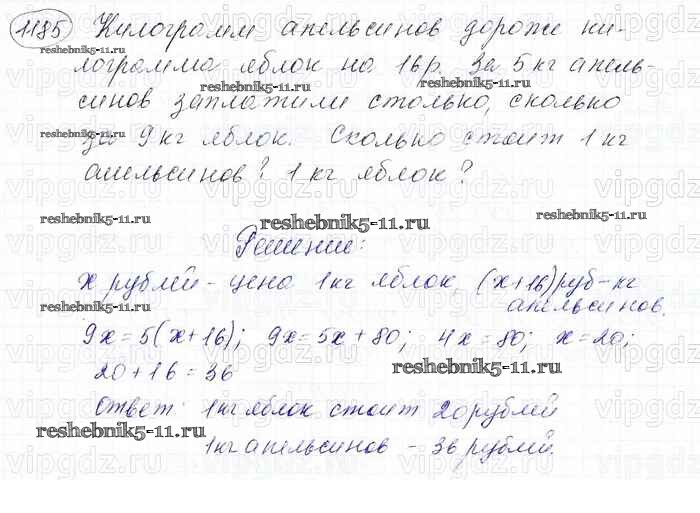 1185 Килограмм апельсинов дороже ки-
лограмма яблок на 16р. За 5 кг апель-
синов заплатили столько, сколько
за 9 кг яблок. Сколько стоит 1 кг
апельсинов? 1 кг яблок?
Решение:
x рублей - цена 1кг яблок, (x+16)руб-кг
апельсинов.
9x=5(x+16); 9x=5x+80; 4x=80; x=20;
20+16=36
Ответ: 1кг яблок стоит 20рублей
1кг апельсинов - 36 рублей.
reshebnik5-11.ru
reshebnik5-11.ru
reshebnik5-11.ru
reshebnik5-11.ru
reshebnik5-11.ru
reshebnik5-11.ru
reshebnik5-11.ru
reshebnik5-11.ru
reshebnik5-11.ru
reshebnik5-11.ru
vipgdz.ru